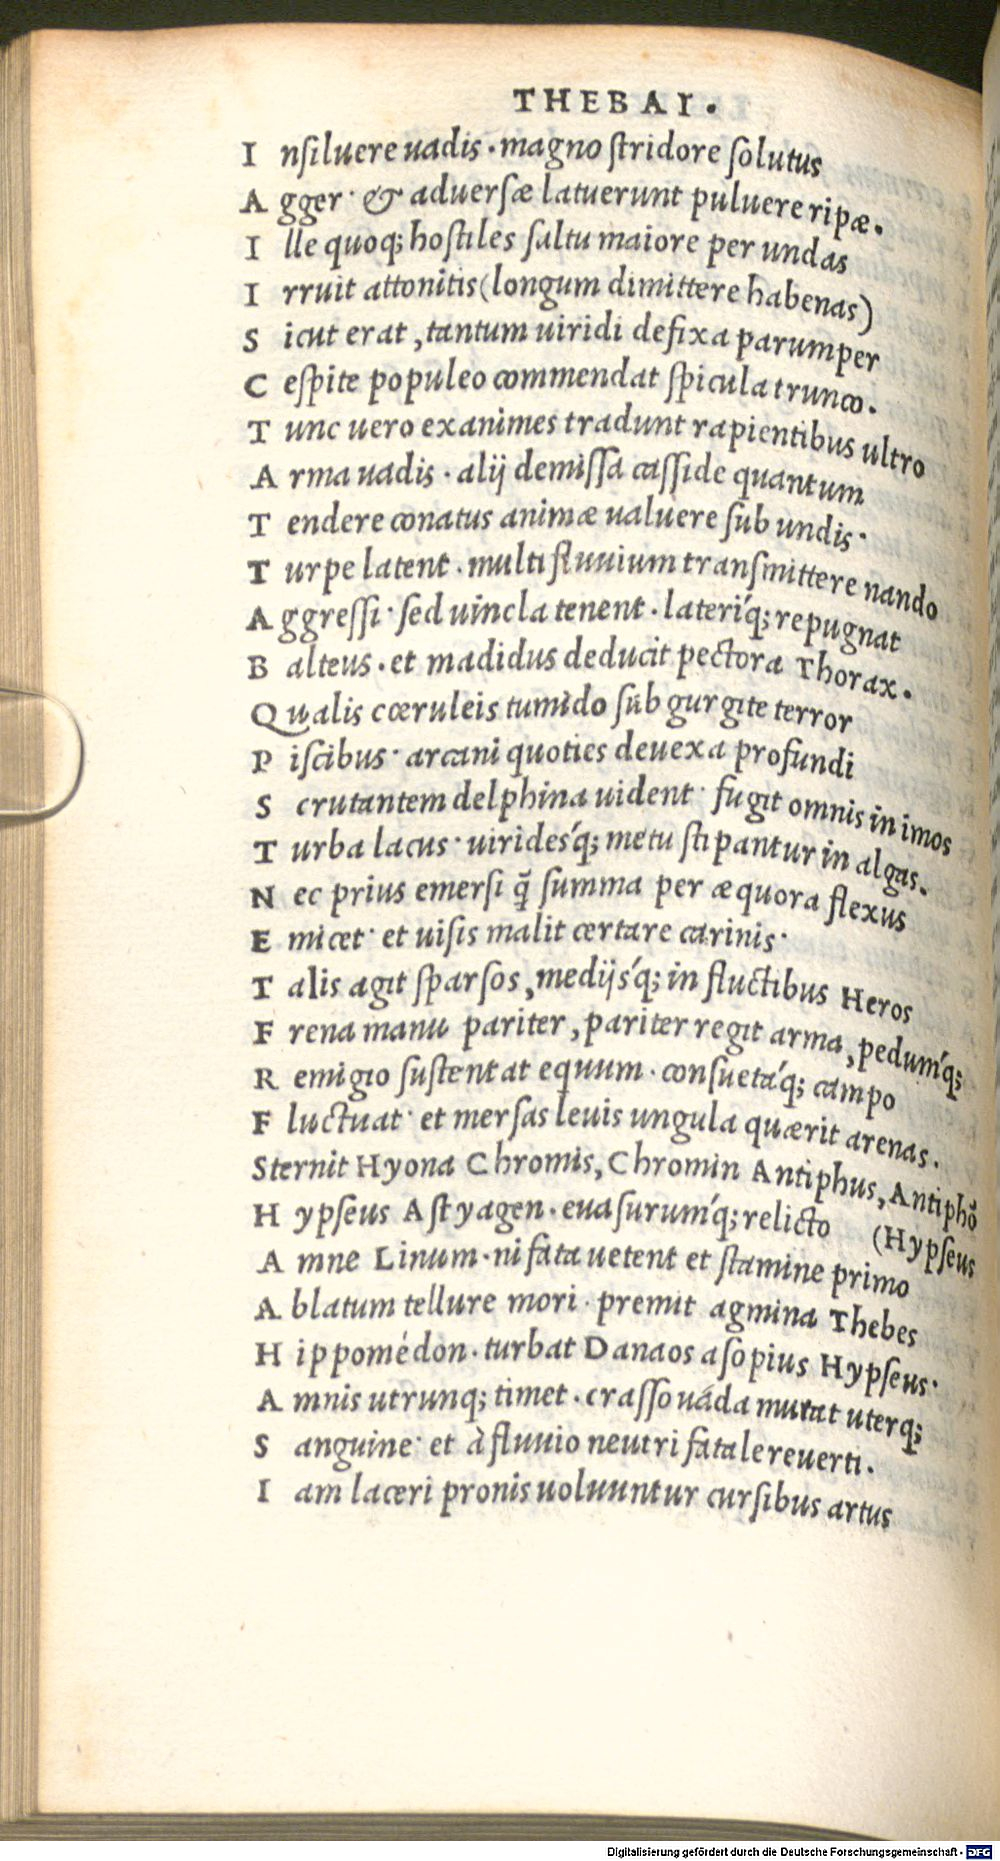 THEBAI.
Insiluere uadis. magno stridore solutus
Agger· & aduersæ latuerunt puluere ripæ.
Ille quoq; hostiles saltu maiore per undas
Irruit attonitis (longum dimittere habenas)
Sicut erat, tantum uiridi defixa parumper
Cespite populeo commendat spicula trunco.
Tunc uero exanimes tradunt rapientibus ultro
Arma uadis. alij demissa casside quantum
Tendere conatus animæ ualuere sub undis·
Turpe latent. multi fluuium transmittere nando
Aggressi· sed uincla tenent. lateriq́; repugnat
Balteus. et madidus deducit pectora Thorax.
Qualis cœruleis tumido sub gurgite terror
Piscibus· arcani quoties deuexa profundi
Scrutantem delphina uident· fugit omnis in imos
Turba lacus· uiridesq́; metu stipantur in algas.
Nec prius emersi q̃ summa per æquora flexus
Emicet· et uisis malit certare carinis·
Talis agit sparsos, medijsq́; in fluctibus Heros
Frena manu pariter, pariter regit arma, pedumq́;
Remigio sustentat equum. consuetaq́; campo
Fluctuat· et mersas leuis ungula quærit arenas.
Sternit Hyona Chromis, Chromin Antiphus, Antiphõ
Hypseus Astyagen. euasurumq́; relicto (Hypseus
Amne Linum. ni fata uetent et stamine primo
Ablatum tellure mori· premit agmina Thebes
Hippomédon. turbat Danaos asopius Hypseus·
Amnis utrunq; timet. crasso uáda mutat uterq;
Sanguine· et à fluuio neutri fatale reuerti.
Iam laceri pronis uoluuntur cursibus artus
Digitalisierung gefördert durch die Deutsche Forschungsgemeinschaft - DFG